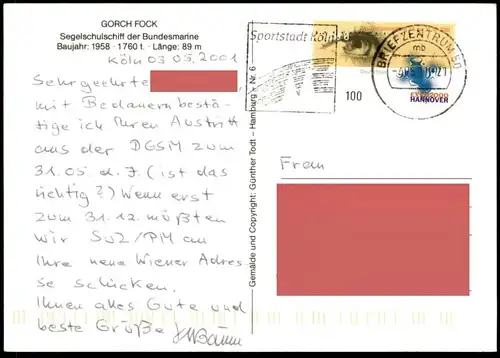 GORCH FOCK
Segelschulschiff der Bundesmarine
Baujahr: 1958 · 1760 t. · Länge: 89 m
Köln 03.05.2001
Sehr geehrte
mit Bedauern bestä-
tige ich Ihren Austritt
aus der DGSM zum
31.05. d. J. (ist das
richtig?) Wenn erst
zum 31.12. müßten
wir SuZ/PM an
Ihre neue Wiener Adres-
se schicken.
Ihnen alles Gute und
beste Grüße
Gemälde und Copyright: Günther Todt – Hamburg – Nr. 6
Sportstadt Köln
BRIEFZENTRUM 50
mb
100
EXPO2000
HANNOVER
Frau